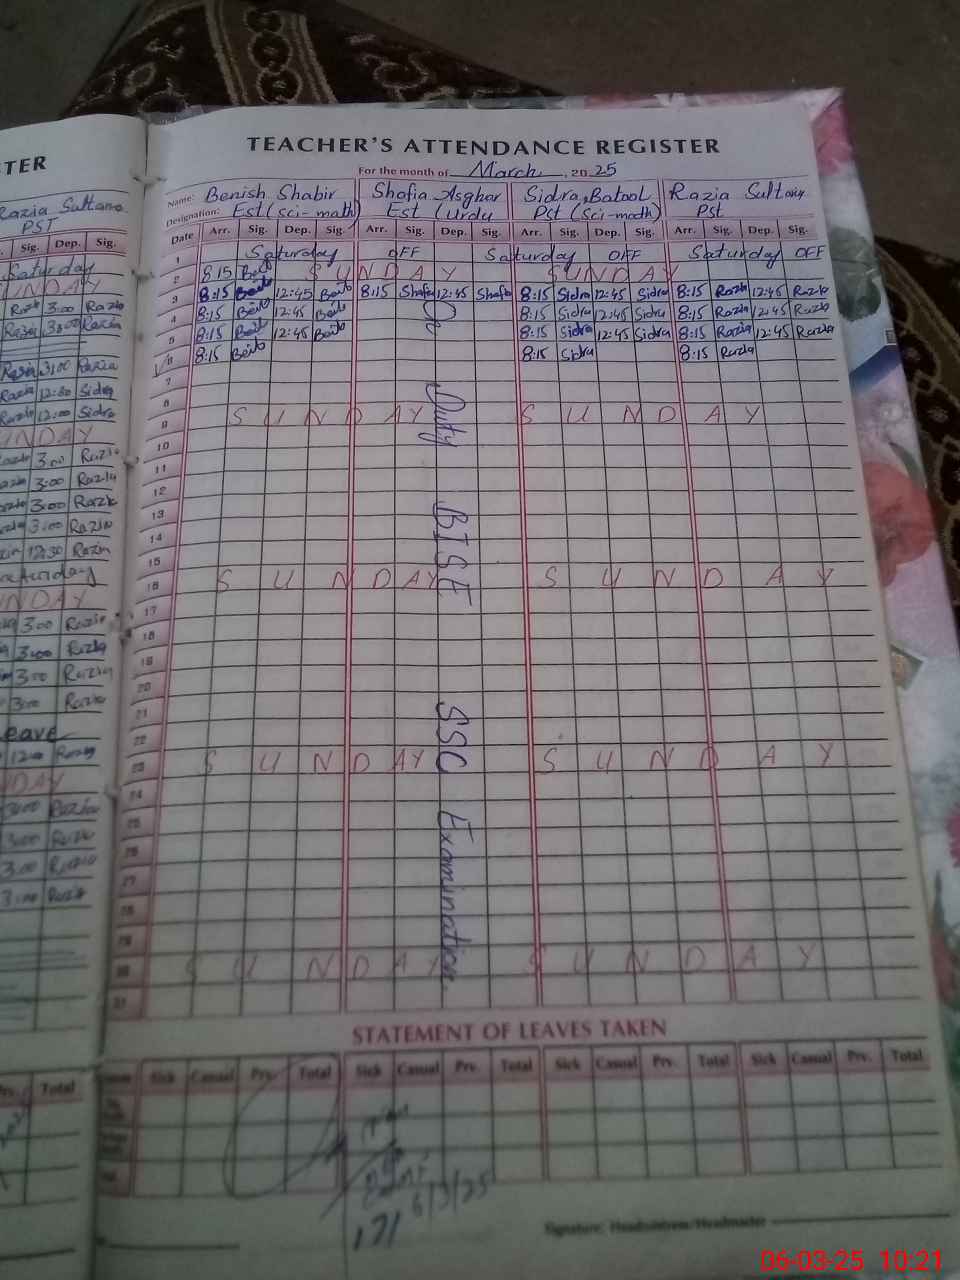 TER
TEACHER'S ATTENDANCE REGISTER
For the month of March, 2025
Name: Benish Shabir Shafia Asghar Sidra Batool Razia Sultana
Designation: Est (sci-math) Est (Urdu Pst (Sci-math) Pst
Date Arr. Sig. Dep. Sig. Arr. Sig. Dep. Sig. Arr. Sig. Dep. Sig. Arr. Sig. Dep. Sig.
1 Saturday OFF Saturday OFF Saturday OFF
2 8:15 SUNDAY SUNDAY
3 8:15 12:45 8:15 Shafia 12:45 Shafia 8:15 Sidra 12:45 Sidra 8:15 Razia 12:45 Razia
4 8:15 12:45 8:15 Sidra 12:45 Sidra 8:15 Razia 12:45 Razia
5 8:15 12:45 8:15 Sidra 12:45 Sidra 8:15 Razia 12:45 Razia
6 8:15 8:15 Sidra 8:15 Razia
7
8
9 SUNDAY SUNDAY
10
11
12
13
14
15
16 SUNDAY SUNDAY
17
18
19
20
21
22
23 SUNDAY SUNDAY
24
25
26
27
28
29
30 SUNDAY SUNDAY
31
On Duty BISE SSC Examination.
STATEMENT OF LEAVES TAKEN
Sick Casual Prv. Total Sick Casual Prv. Total Sick Casual Prv. Total Sick Casual Prv. Total
6/3/25
171
Signature: Headmistress/Headmaster
Razia Sultana
PST
Sig. Dep. Sig.
Saturday
UNDAY
Razia 3:00 Razia
Razia 3:00 Razia
Razia 3:00 Razia
Razia 12:30 Sidra
Razia 12:00 Sidra
UNDAY
3:00 Razia
3:00 Razia
Razia 3:00 Razia
3:00 Razia
12:30 Razia
Saturday
UNDAY
3:00 Razia
3:00 Razia
3:00 Razia
3:00 Razia
Leave
12:00 Razia
NDAY
3:00 Razia
3:00 Razia
3:00 Razia
3:00 Razia
Prv. Total
06-03-25 10:21